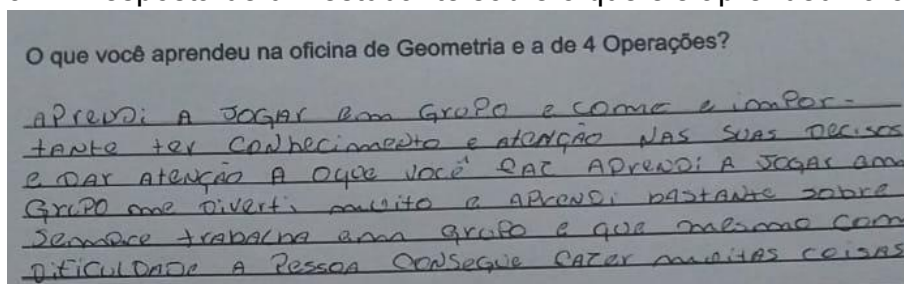 O que você aprendeu na oficina de Geometria e a de 4 Operações?
APrendi A JOGAr em GruPO e como e imPor-
tANte ter CoNhecimento e AteNÇÃO NAS SUAS Decisos
e DAr AteNÇÃO A Oque você FAZ APreNDi A JOGAr em
GruPO me Diverti muito e APreNDi bAStANte sobre
Sempre trabalha em GruPO e que mesmo com
DificulDADe A PessoA CoNSegue FAZer muitAS coisAS